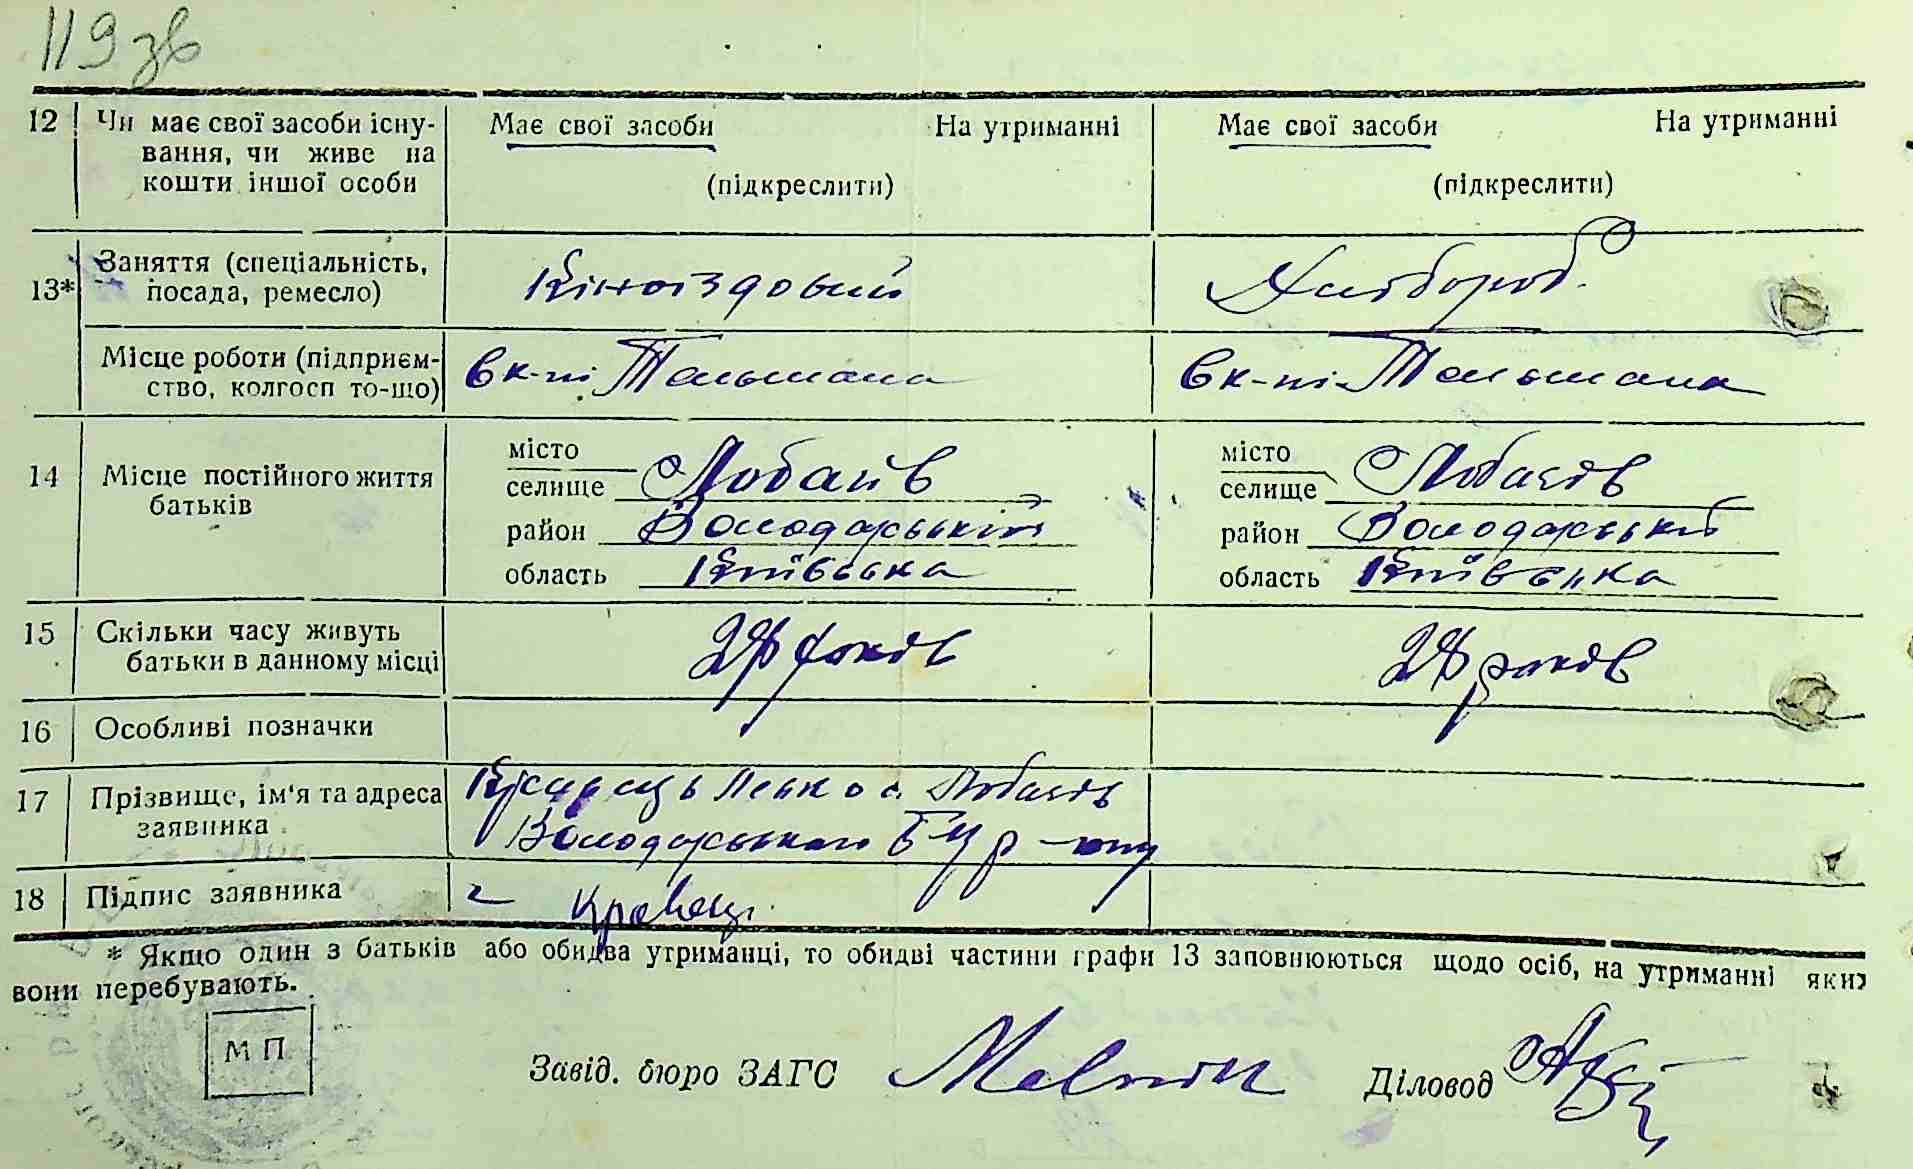 119 зв
12 Чи має свої засоби існу- Має свої засоби На утриманні Має свої засоби На утриманні
вання, чи живе на
кошти іншої особи (підкреслити) (підкреслити)
Заняття (спеціальність,
13* посада, ремесло) Їздовий Хлібороб.
Місце роботи (підприєм- в к-пі Тельмана в к-пі Тельмана
ство, колгосп то-що)
місто місто
14 Місце постійного життя селище Лобачів селище Лобачів
батьків район Володарський район Володарський
область Київська область Київська
15 Скільки часу живуть 28 років 28 років
батьки в данному місці
16 Особливі позначки
17 Прізвище, ім'я та адреса Кравець с. Лобачів
заявника Володарського р-ну
18 Підпис заявника Кравець
* Якщо один з батьків або обидва утриманці, то обидві частини графи 13 заповнюються щодо осіб, на утриманні яких
вони перебувають.
М П
Завід. бюро ЗАГС Діловод